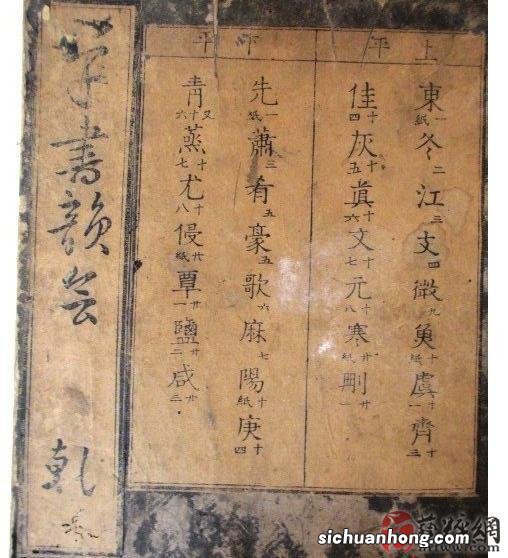 上平
東一紙冬二江三支四微九魚十紙虞十一齊十三
佳十四灰十五眞十六文十七元十八寒廿紙刪廿一
下平
先一紙蕭三肴五豪五歌六麻七陽十紙庚十四
青又十六蒸十七尤十八侵廿紙覃廿一鹽廿二咸廿三
草書韻會 乾
sichuanhong.com